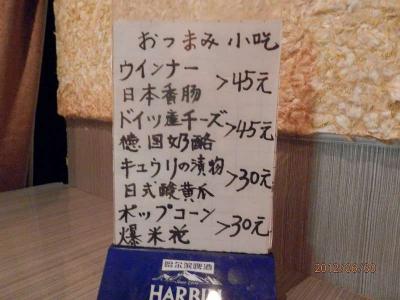 おつまみ 小吃
ウインナー
日本香肠 >45元
ドイツ産チーズ
德国奶酪 >45元
キュウリの漬物
日式酸黄瓜 >30元
ポップコーン
爆米花 >30元
哈尔滨啤酒
HARBI
2012/06/30